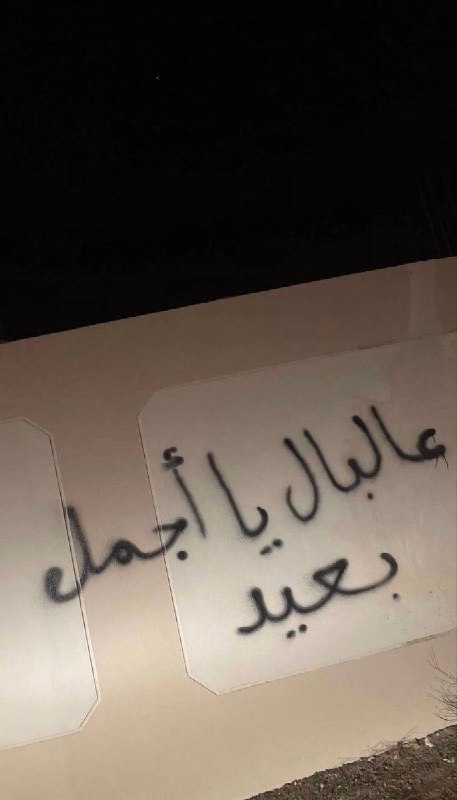 عالبال يا أجمل
بعيد